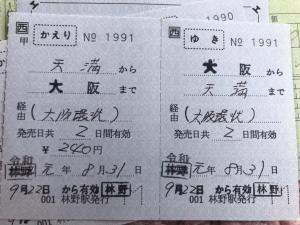 西 かえり № 1991
甲
天満から
大阪まで
経由(大阪環状)
発売日共2日間有効
¥240円
令和
元年8月31日
9月22日から有効 林野
001 林野駅発行
1990
西 ゆき № 1991
大阪から
天満まで
経由(大阪環状)
発売日共2日間有効
令和
元年8月31日
9月22日から有効 林野
001 林野駅発行